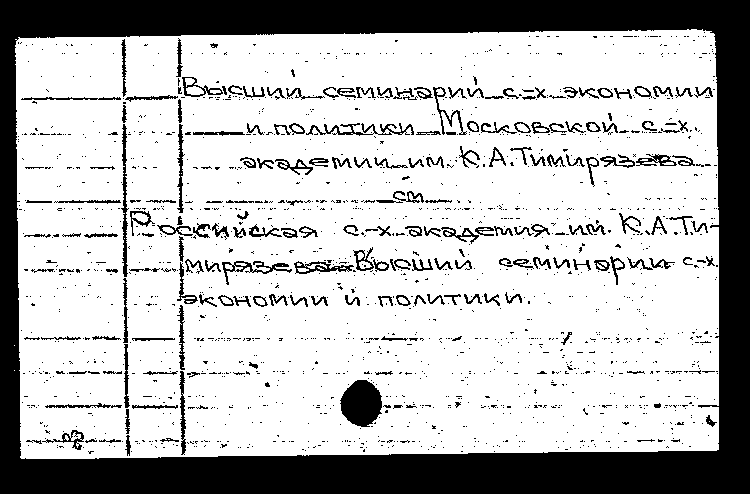 Высший семинарий с.-х. экономии
и политики Московской с.-х.
академии им. К.А. Тимирязева
см
Российская с.-х. академия им. К.А. Ти-
мирязева. Высший семинарии с.-х.
экономии и политики.